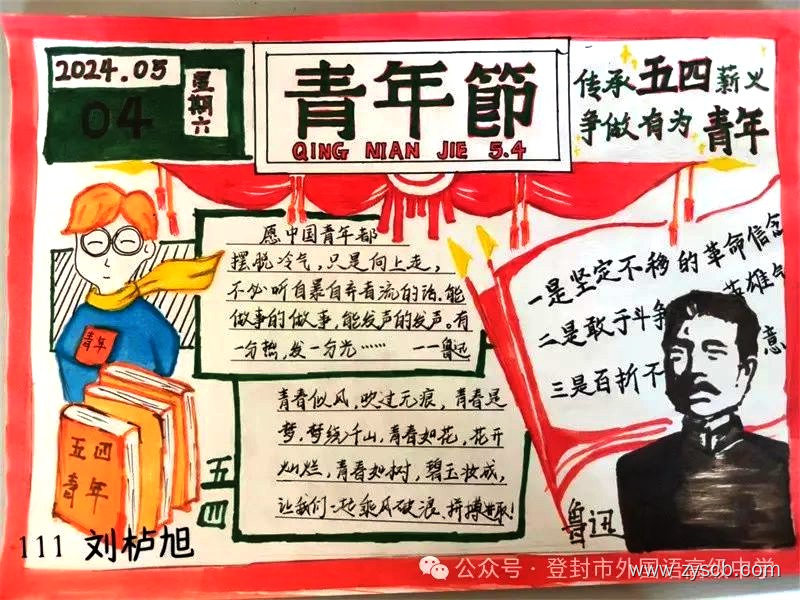 2024.05
04
星期六
青年節
QING NIAN JIE 5.4
传承五四薪火
争做有为青年
愿中国青年都
摆脱冷气，只是向上走，
不必听自暴自弃者流的话。能
做事的做事，能发声的发声。有
一分热，发一分光…… ——鲁迅
一是坚定不移的革命信念
二是敢于斗争
英雄气
三是百折不
意
青年
五四
青年
青春似风，吹过无痕，青春是
梦，梦绕千山，青春如花，花开
灿烂，青春如树，碧玉妆成，
让我们一起乘风破浪、拼搏进取！
五四
鲁迅
111 刘栌旭
公众号·登封市外国语高级中学
www.zyscb.com